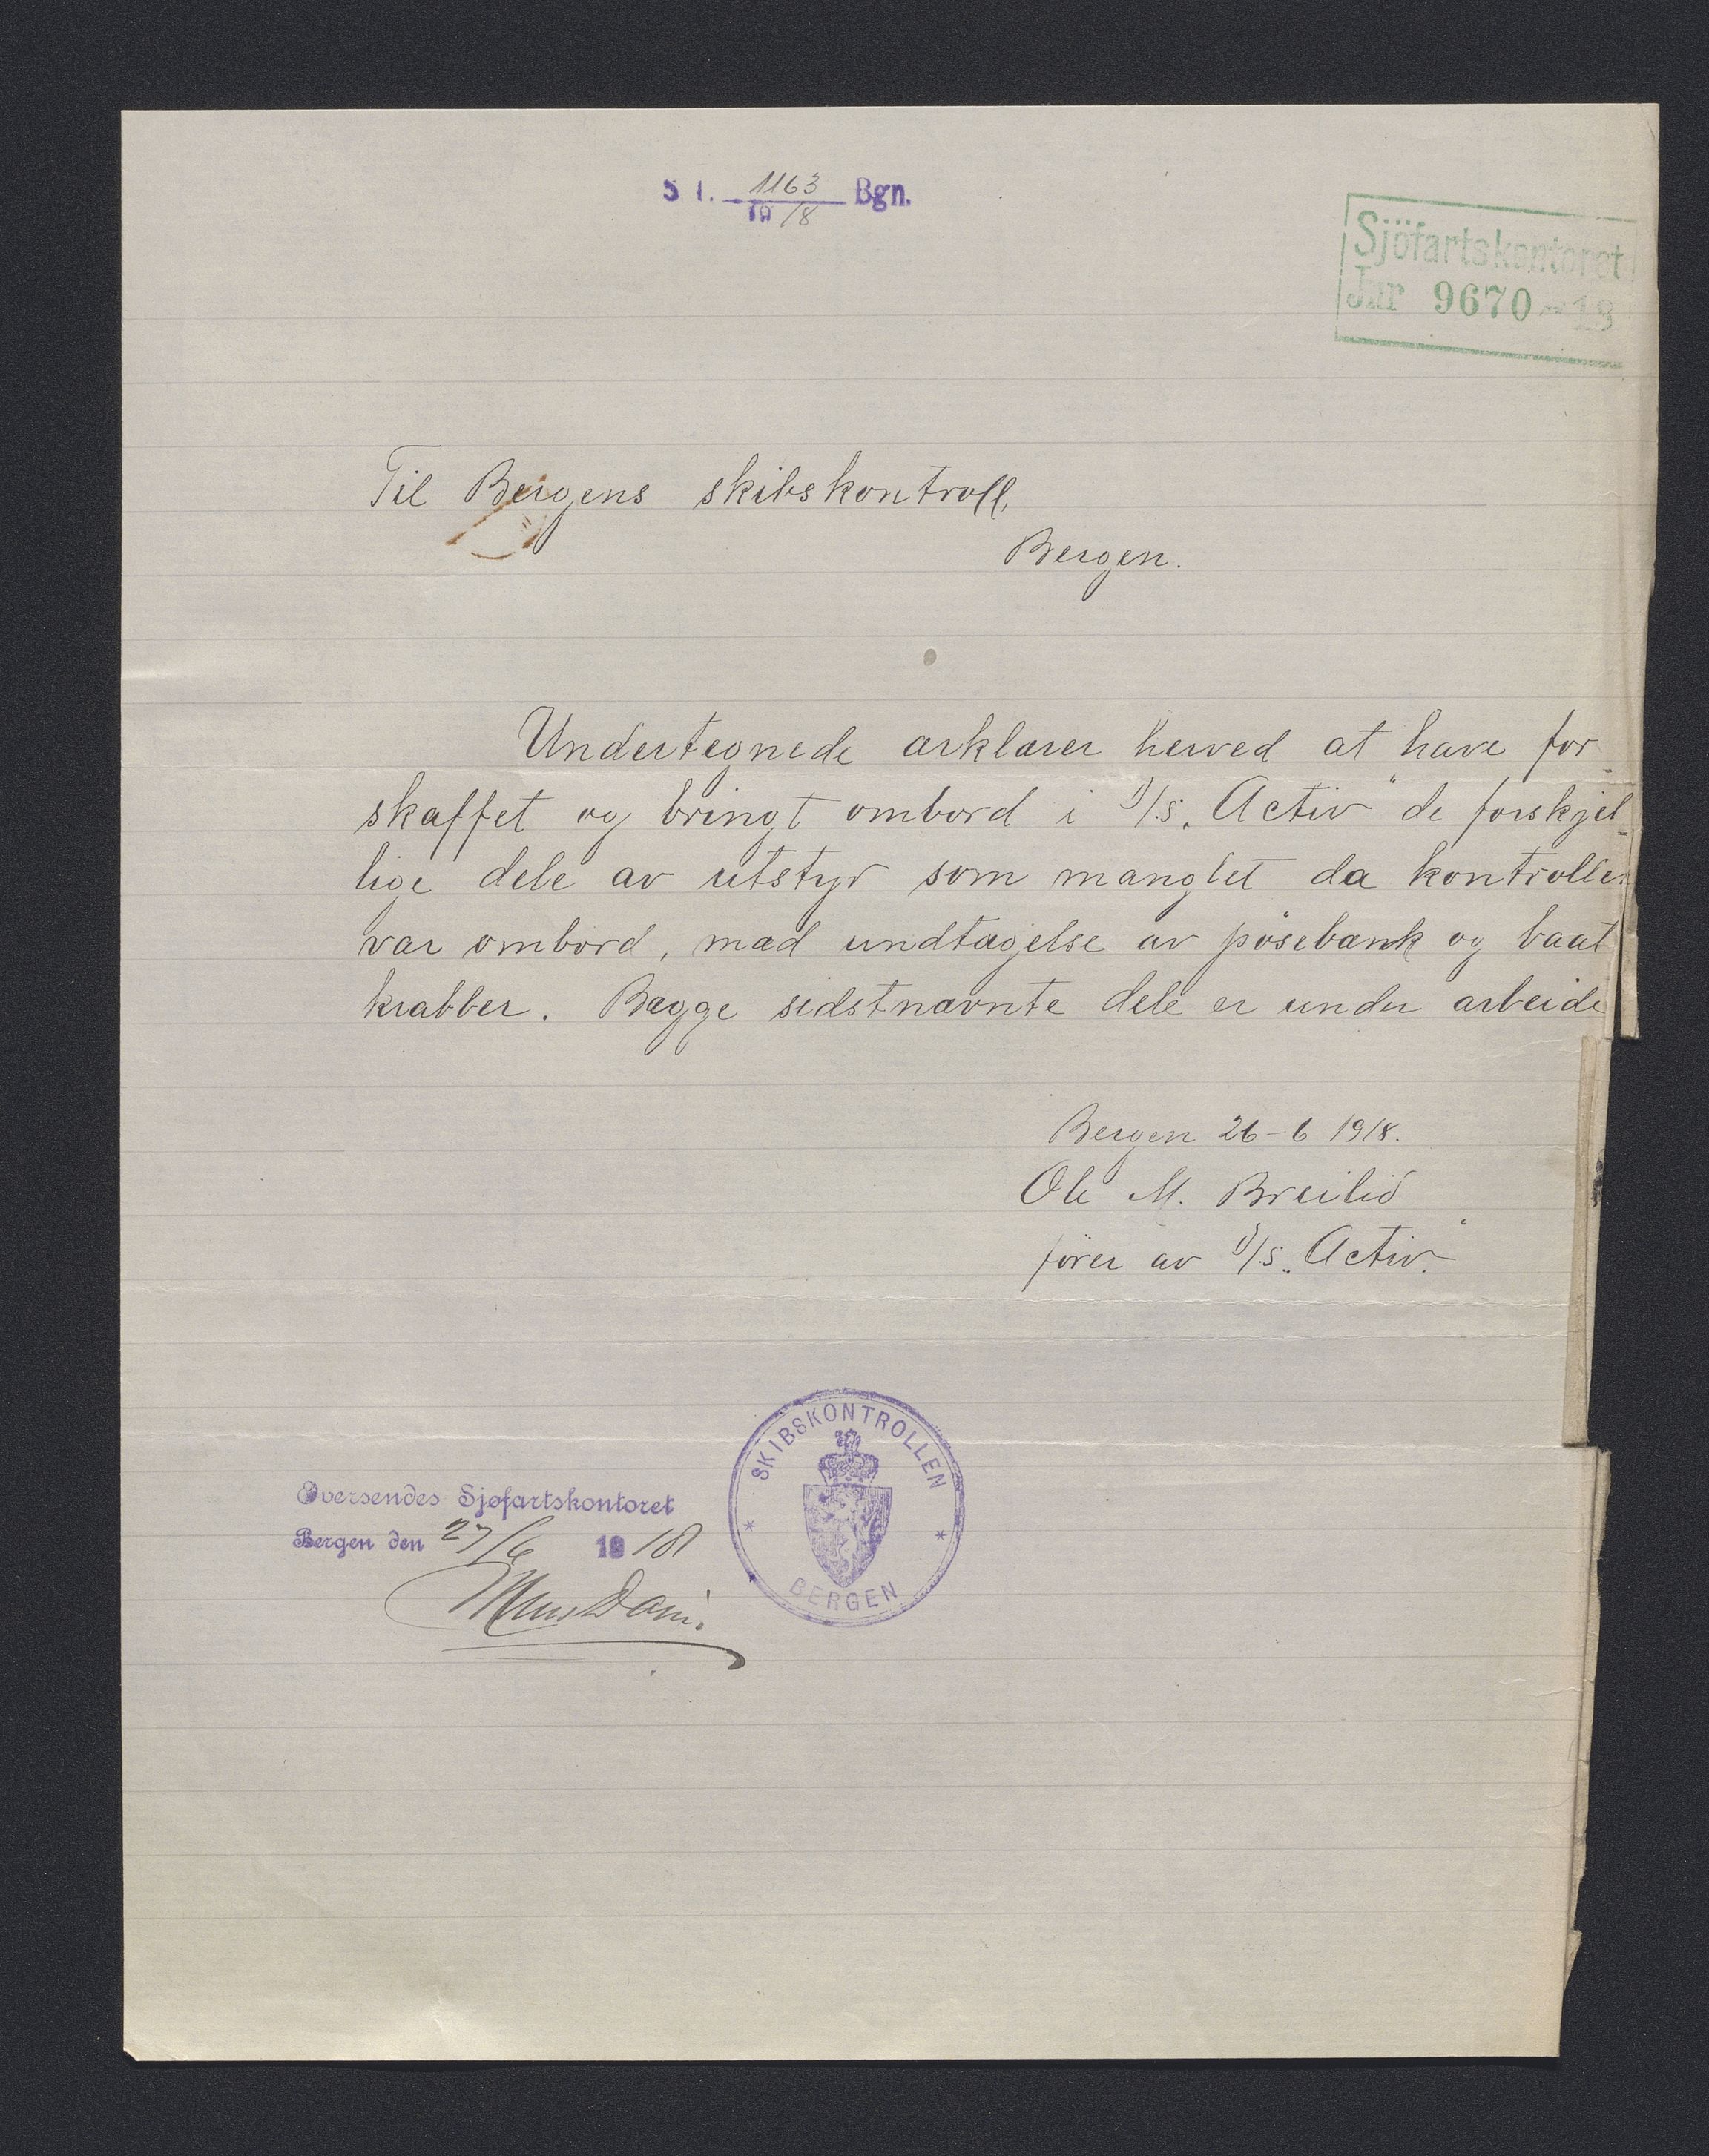 S 1. 1163 Bgn.
19/8
Sjöfartskontoret
Jnr 9670 18
Til Bergens skibskontroll,
Bergen.
Undertegnede ærklærer herved at have for-
skaffet og bringt ombord i D/S. "Activ" de forskjel-
lige dele av utstyr som manglet da kontrollen
var ombord, med undtagelse av pøsebænk og baat
krabber. Begge sidstnævnte dele er under arbeide
Bergen 26-6 1918.
Ole M. Breilid
fører av D/S. "Activ."
Oversendes Sjøfartskontoret
Bergen den 27/6 1918
SKIBSKONTROLLEN
* *
BERGEN